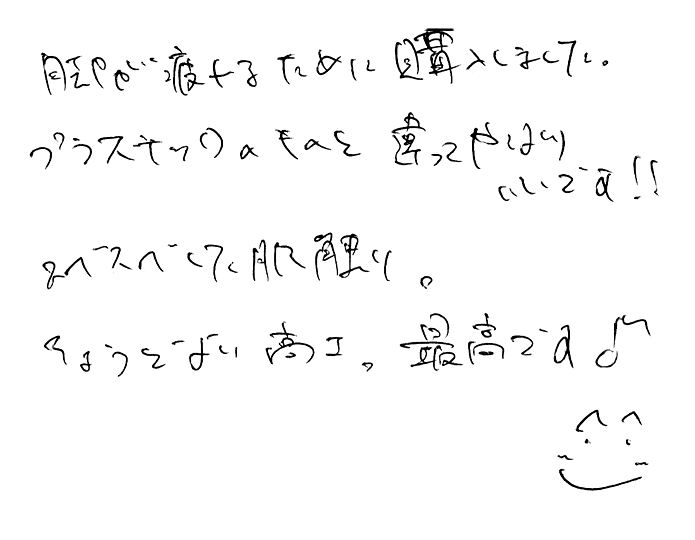 腕が疲れるために購入しました。
プラスチックのものと違ってやはり
いいです!!
スベスベした肌触り。
ちょうどよい高さ。最高です♪